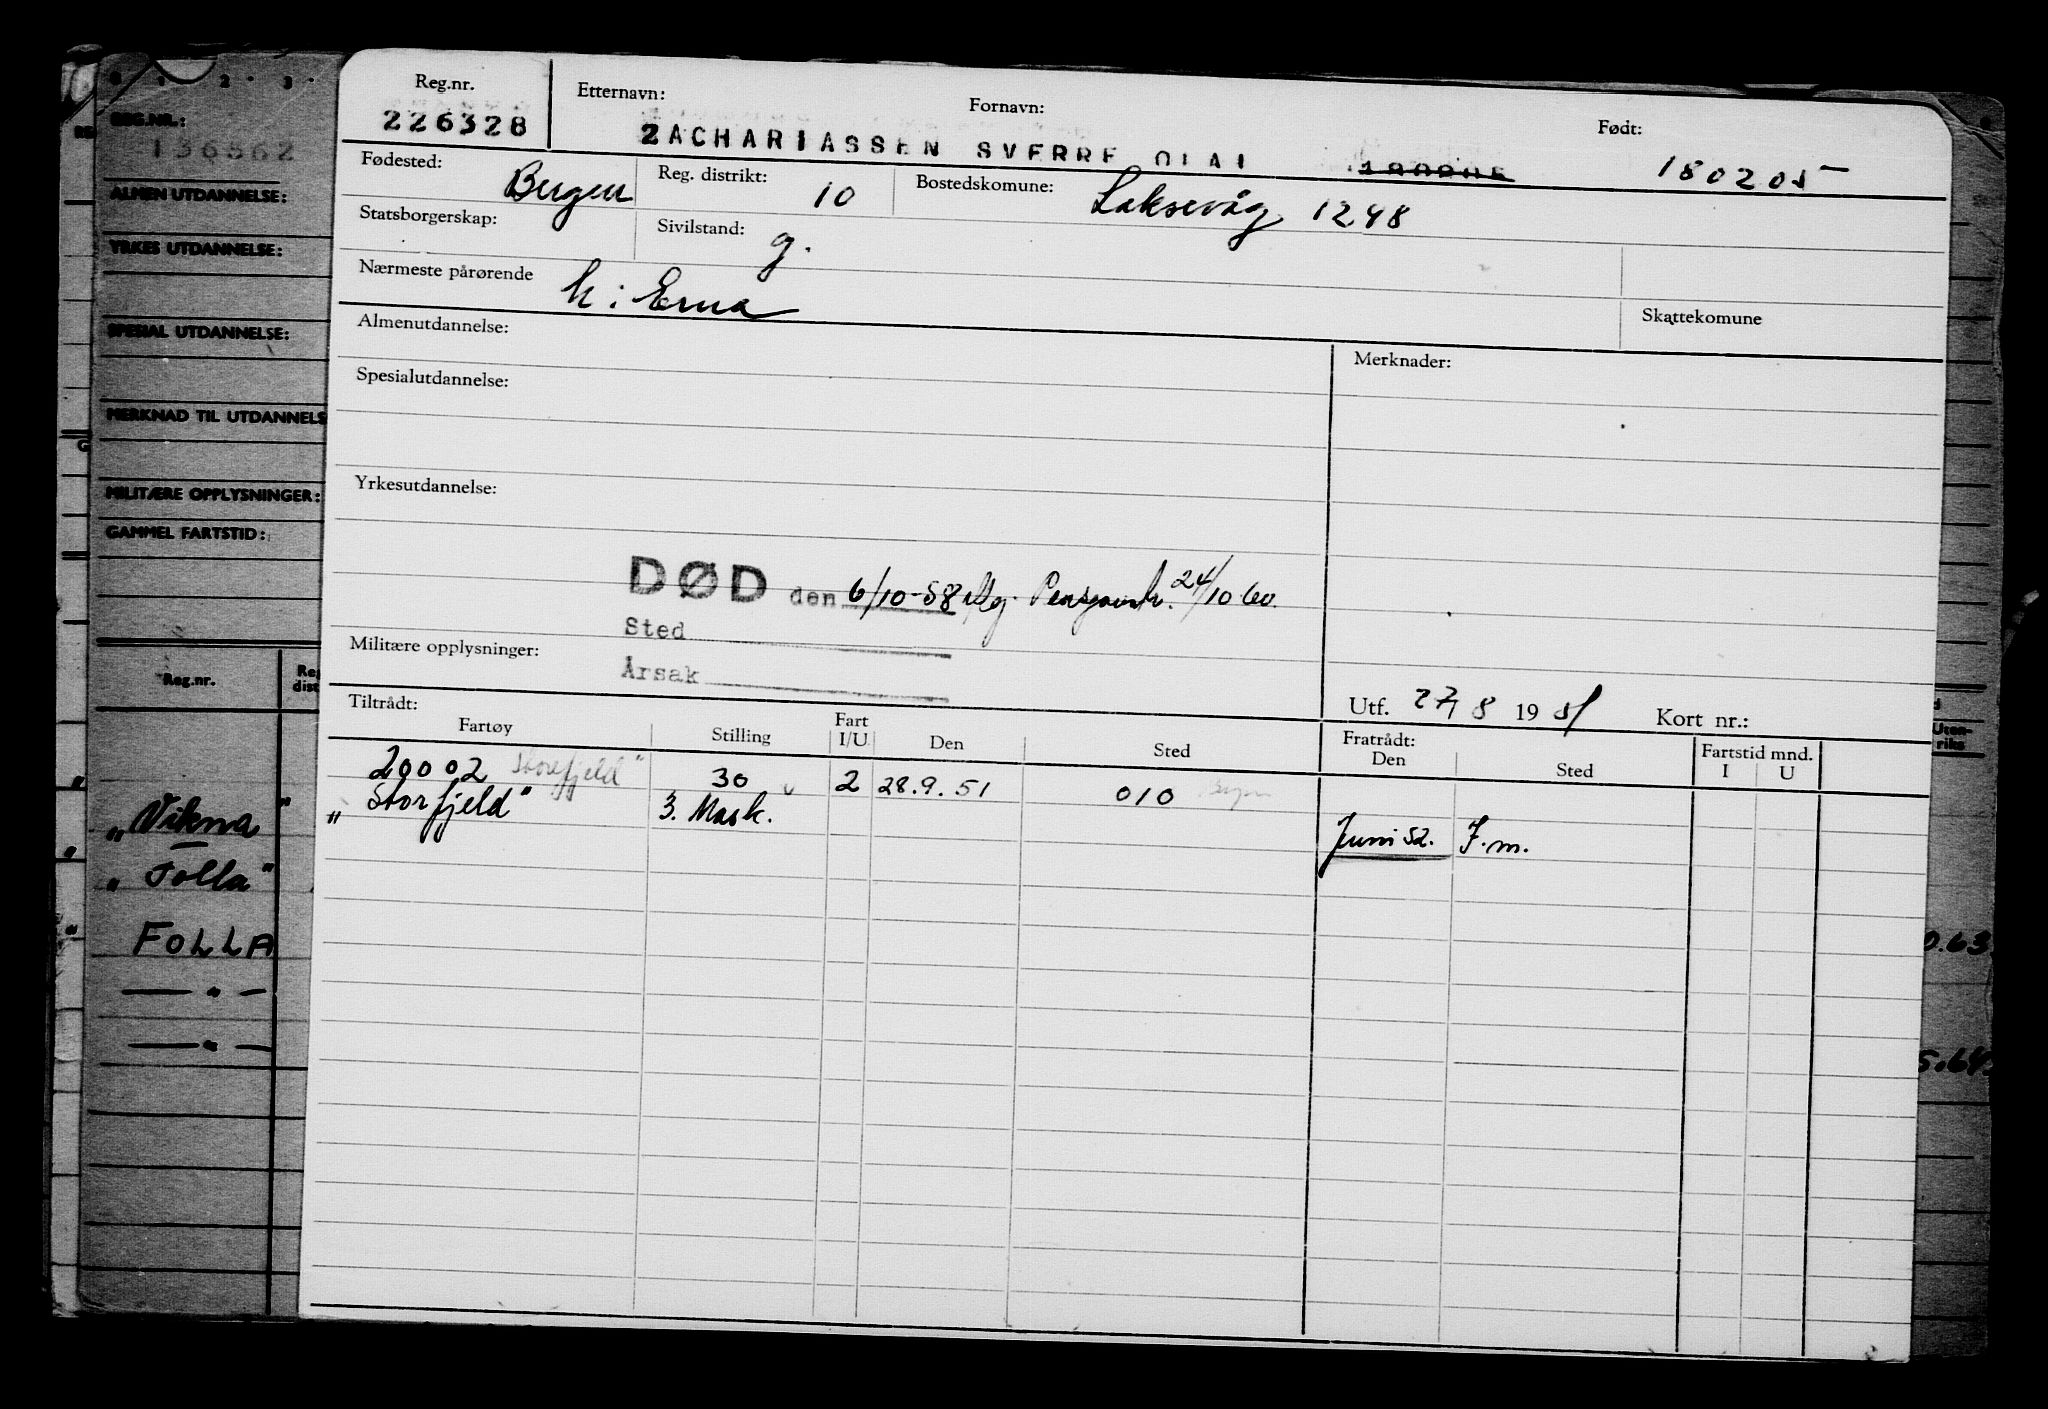 Reg.nr. Etternavn: Fornavn: Født:
226328 ZACHARIASSEN SVERRE OLAI 180205
Fødested: Bergen Reg. distrikt: 10 Bostedskomune: Laksevåg 1248
Statsborgerskap: Sivilstand: g.
Nærmeste pårørende h: Erna Skattekomune
Almenutdannelse: Merknader:
Spesialutdannelse:
Yrkesutdannelse:
DØD den 6/10-58 24/10 60.
Sted
Militære opplysninger: Årsak
Utf. 27/8 1951 Kort nr.:
Tiltrådt: Fratrådt: Fartstid mnd.
Fartøy Stilling Fart I/U Den Sted Den Sted I U
20002 Storfjeld" 30 2 28.9.51 010 Bergen
„Storfjeld" 3. Mask. Juni 52. F.m.
0 1 2 3
REG.NR.:
136562
ALMEN UTDANNELSE:
YRKES UTDANNELSE:
SPESIAL UTDANNELSE:
MERKNAD TIL UTDANNELS
MILITÆRE OPPLYSNINGER:
GAMMEL FARTSTID:
Reg.nr. Reg dist
„Vikna"
„Folla"
FOLLA
— " —
— " —
Uten-
riks
0.63.
5.64.